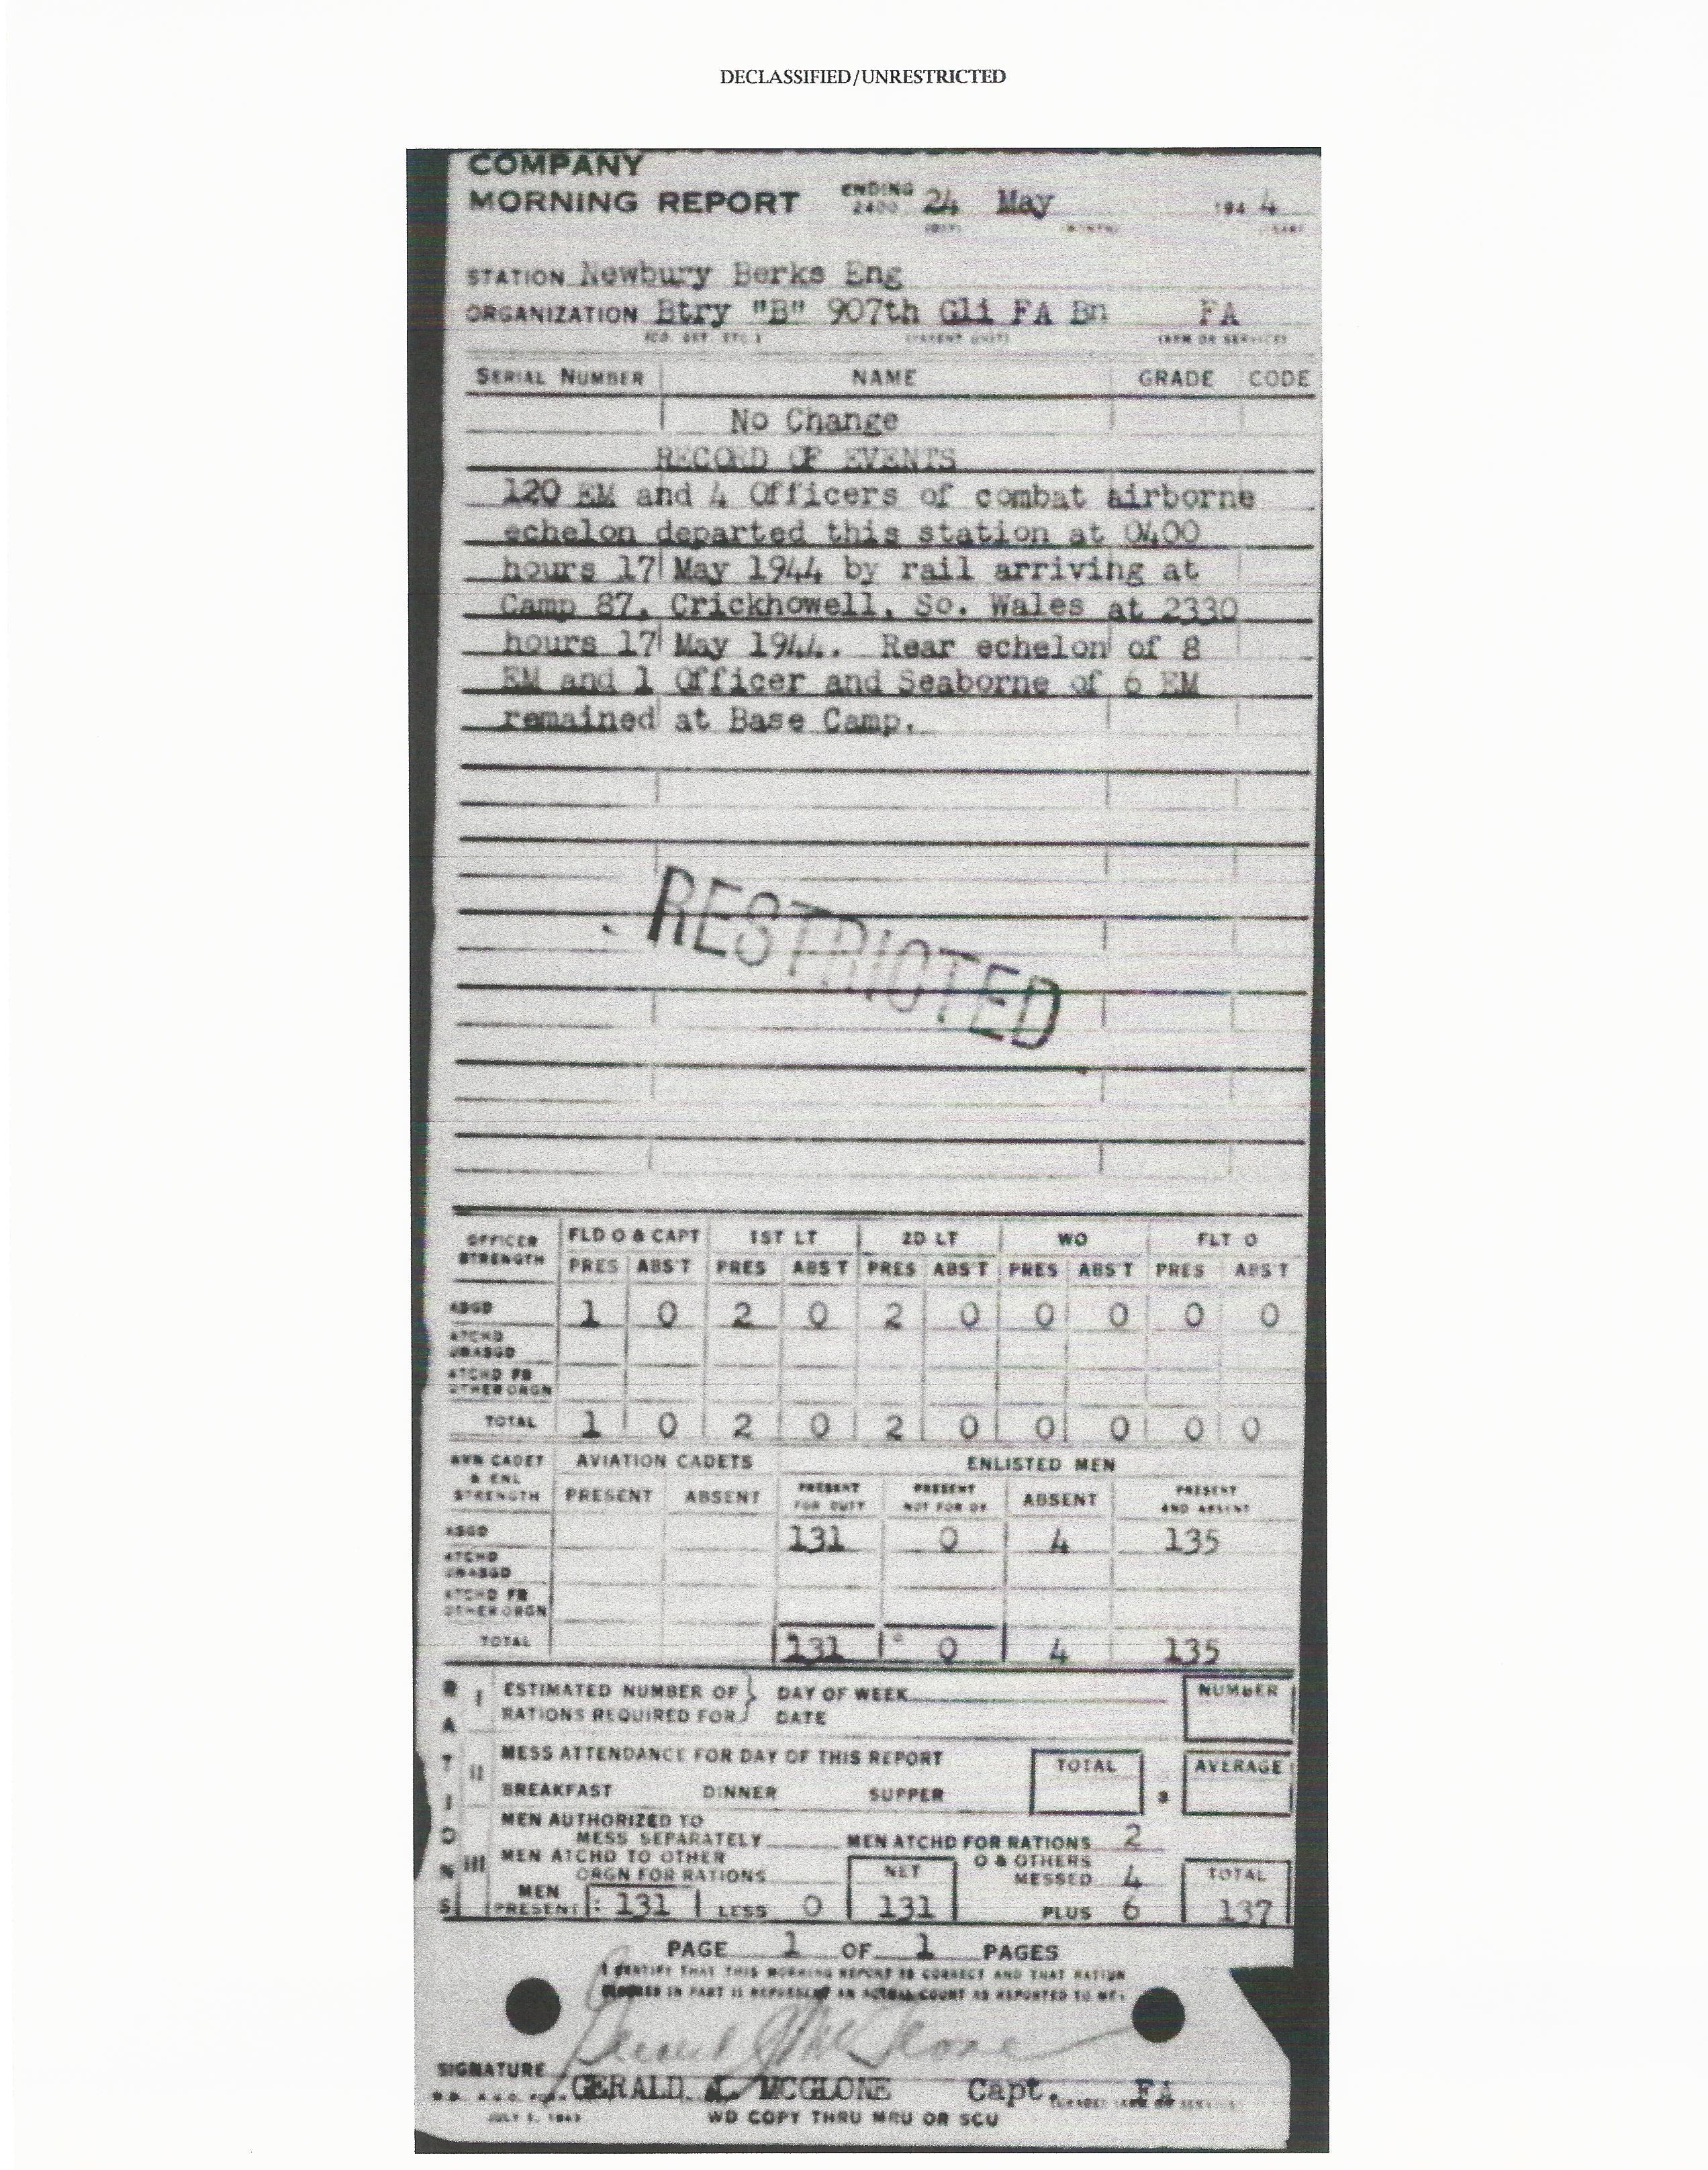 DECLASSIFIED/UNRESTRICTED
COMPANY
MORNING REPORT ENDING 2400 24 May 1944
(DAY) (MONTH) (YEAR)
STATION Newbury Berks Eng
ORGANIZATION Btry "B" 907th Gli FA Bn FA
(CO. DET. ETC.) (PARENT UNIT) (ARM OR SERVICE)
SERIAL NUMBER NAME GRADE CODE
No Change
RECORD OF EVENTS
120 EM and 4 Officers of combat airborne
echelon departed this station at 0400
hours 17 May 1944 by rail arriving at
Camp 87, Crickhowell, So. Wales at 2330
hours 17 May 1944. Rear echelon of 8
EM and 1 Officer and Seaborne of 6 EM
remained at Base Camp.
RESTRICTED
OFFICER STRENGTH FLD O & CAPT 1ST LT 2D LT WO FLT O
PRES ABS'T PRES ABS'T PRES ABS'T PRES ABS'T PRES ABS'T
ASGD 1 0 2 0 2 0 0 0 0 0
ATCHD UNASGD
ATCHD FR OTHER ORGN
TOTAL 1 0 2 0 2 0 0 0 0 0
AVN CADET & ENL STRENGTH AVIATION CADETS ENLISTED MEN
PRESENT ABSENT PRESENT FOR DUTY PRESENT NOT FOR DY ABSENT PRESENT AND ABSENT
ASGD 131 0 4 135
ATCHD UNASGD
ATCHD FR OTHER ORGN
TOTAL 131 0 4 135
RATIONS
I ESTIMATED NUMBER OF DAY OF WEEK NUMBER
RATIONS REQUIRED FOR DATE
II MESS ATTENDANCE FOR DAY OF THIS REPORT TOTAL AVERAGE
BREAKFAST DINNER SUPPER
MEN AUTHORIZED TO
MESS SEPARATELY MEN ATCHD FOR RATIONS 2
III MEN ATCHD TO OTHER O & OTHERS
ORGN FOR RATIONS NET MESSED 4 TOTAL
MEN PRESENT 131 LESS 0 131 PLUS 6 137
PAGE 1 OF 1 PAGES
I CERTIFY THAT THIS MORNING REPORT IS CORRECT AND THAT RATION
FIGURES IN PART II REPRESENT AN ACTUAL COUNT AS REPORTED TO ME.
SIGNATURE
GERALD J. MCGLONE Capt. FA
JULY 1, 1943 WD COPY THRU MRU OR SCU